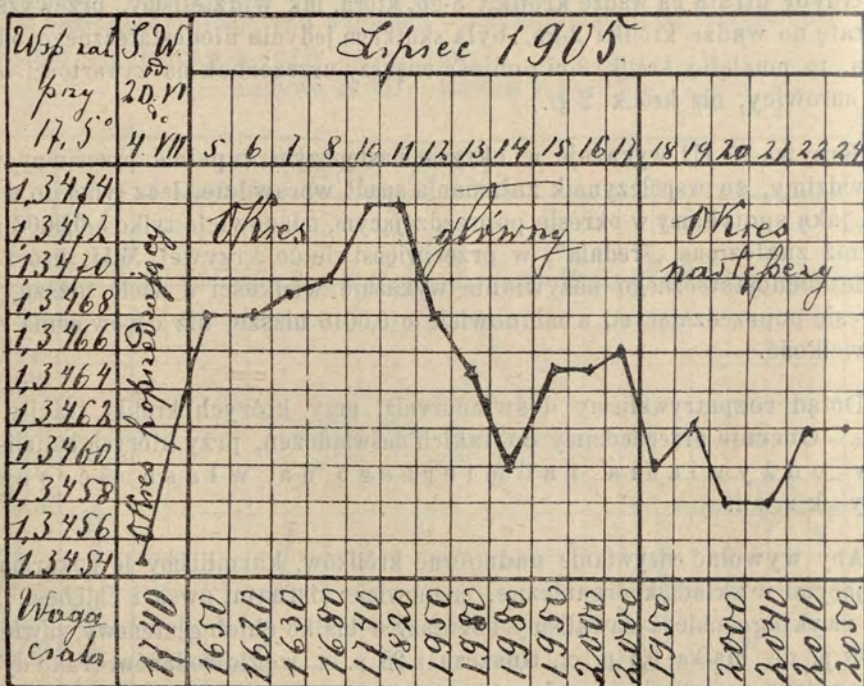 Wsp. zał. przy 17,5°
Ś. W. od 20.VI do 4.VII
Lipiec 1905
5 6 7 8 10 11 12 13 14 15 16 17 18 19 20 21 22 24
1,3474
1,3472
1,3470
1,3468
1,3466
1,3464
1,3462
1,3460
1,3458
1,3456
1,3454
Okres poprzedzający
Okres główny
Okres następczy
Waga ciała
1650 1620 1630 1680 1820 1950 1980 1980 1950 1950 2000 2040 2010 2050